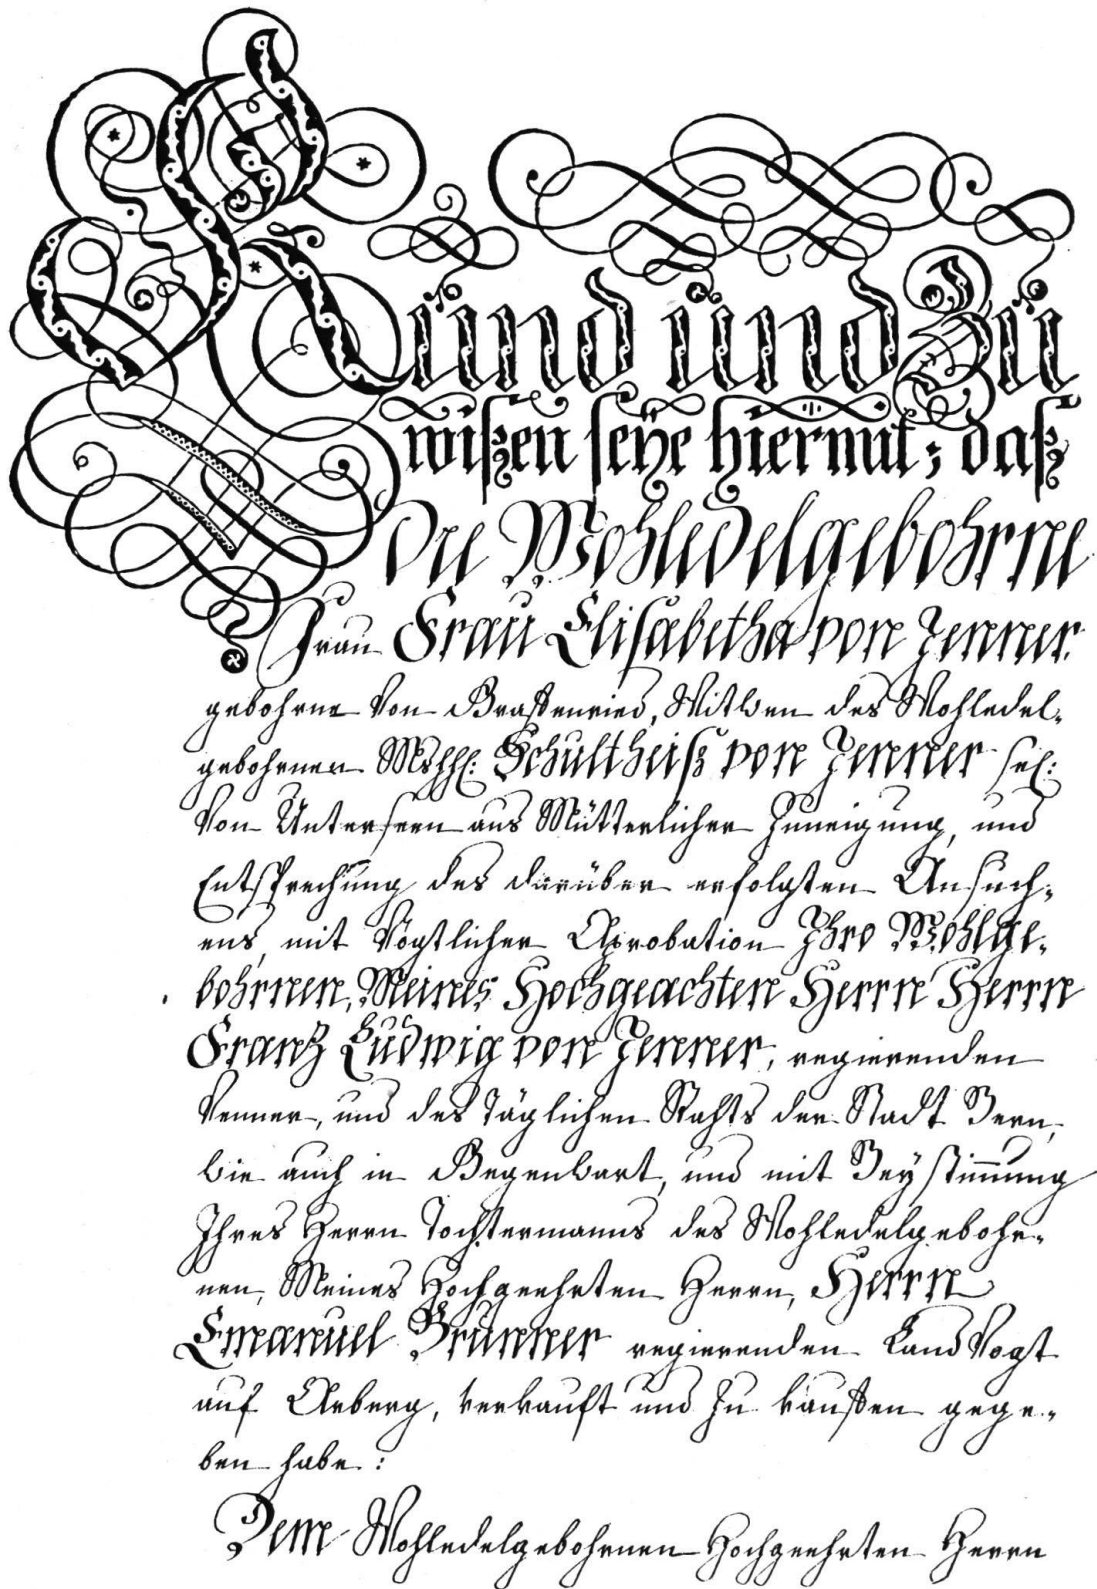 Kund und Zu
wißen seÿe hiermit; daß
Die Wohledelgebohrne
Frau Frau Elisabetha von Jenner.
gebohrne von Graffenried, Witwen des Wohledel-
gebohrnen Mshhl: Schultheiß von Jenner sel:
von Unterseen aus Mütterlicher Zuneigung, und
Entsprechung des darüber erfolgten Ansuch-
ens, mit Vögtlicher Aprobation Ihro Wohlge-
bohrnen, Meines Hochgeachten Herrn Herrn
Frantz Ludwig von Jenner, regierenden
Venner, und des Täglichen Rahts der Stadt Bern,
wie auch in Gegenwart, und mit Beystim̄ung
Ihres Herrn Tochtermanns des Wohledelgebohr-
nen, Meines Hochgeehrten Herrn, Herrn
Emanuel Brunner regierenden LandVogt
auf Arberg, verkauft und zu kauffen gege-
ben habe:
Dem Wohledelgebohrnen Hochgeehrten Herrn